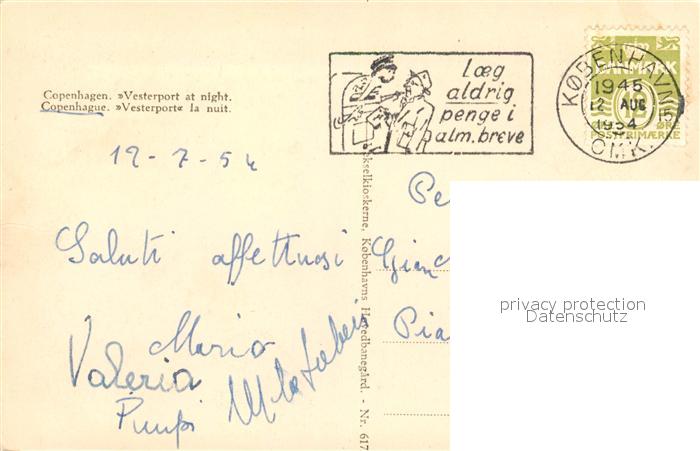 Copenhagen. »Vesterport at night.
Copenhague. »Vesterport« la nuit.
Læg
aldrig
penge i
alm. breve
KØBENHAVN
1945
12 AUG
1954
OMK.
15
DANMARK
12
ØRE
POSTFRIMÆRKE
Saluti affettuosi
Mario
Valeria
Pe
Pia
kselkioskerne, Københavns Hovedbanegård. - Nr. 617
privacy protection
Datenschutz